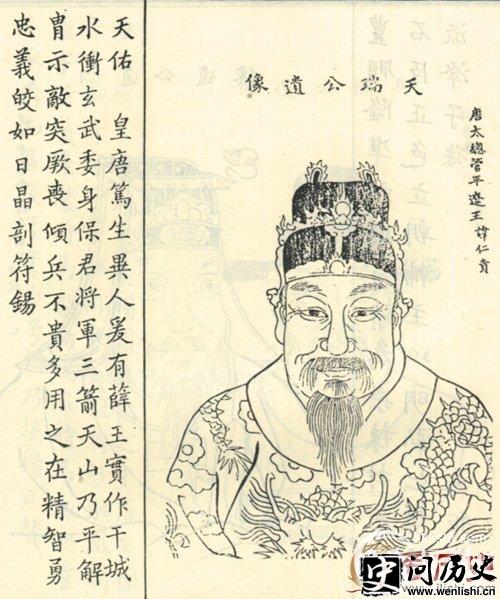 天瑞公遺像
唐太總管平遼王諱仁貴
天佑 皇唐篤生異人爰有薛王實作干城
水衝玄武委身保君將軍三箭天山乃平解
冑示敵突厥喪傾兵不貴多用之在精智勇
忠義皎如日晶剖符錫
问历史
www.wenlishi.cn